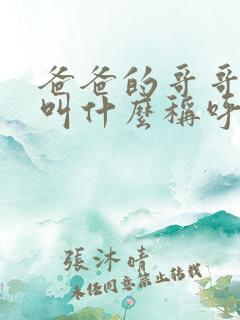 爸爸的哥哥
叫什麼稱呼
張沐晴
未經同意禁止轉載